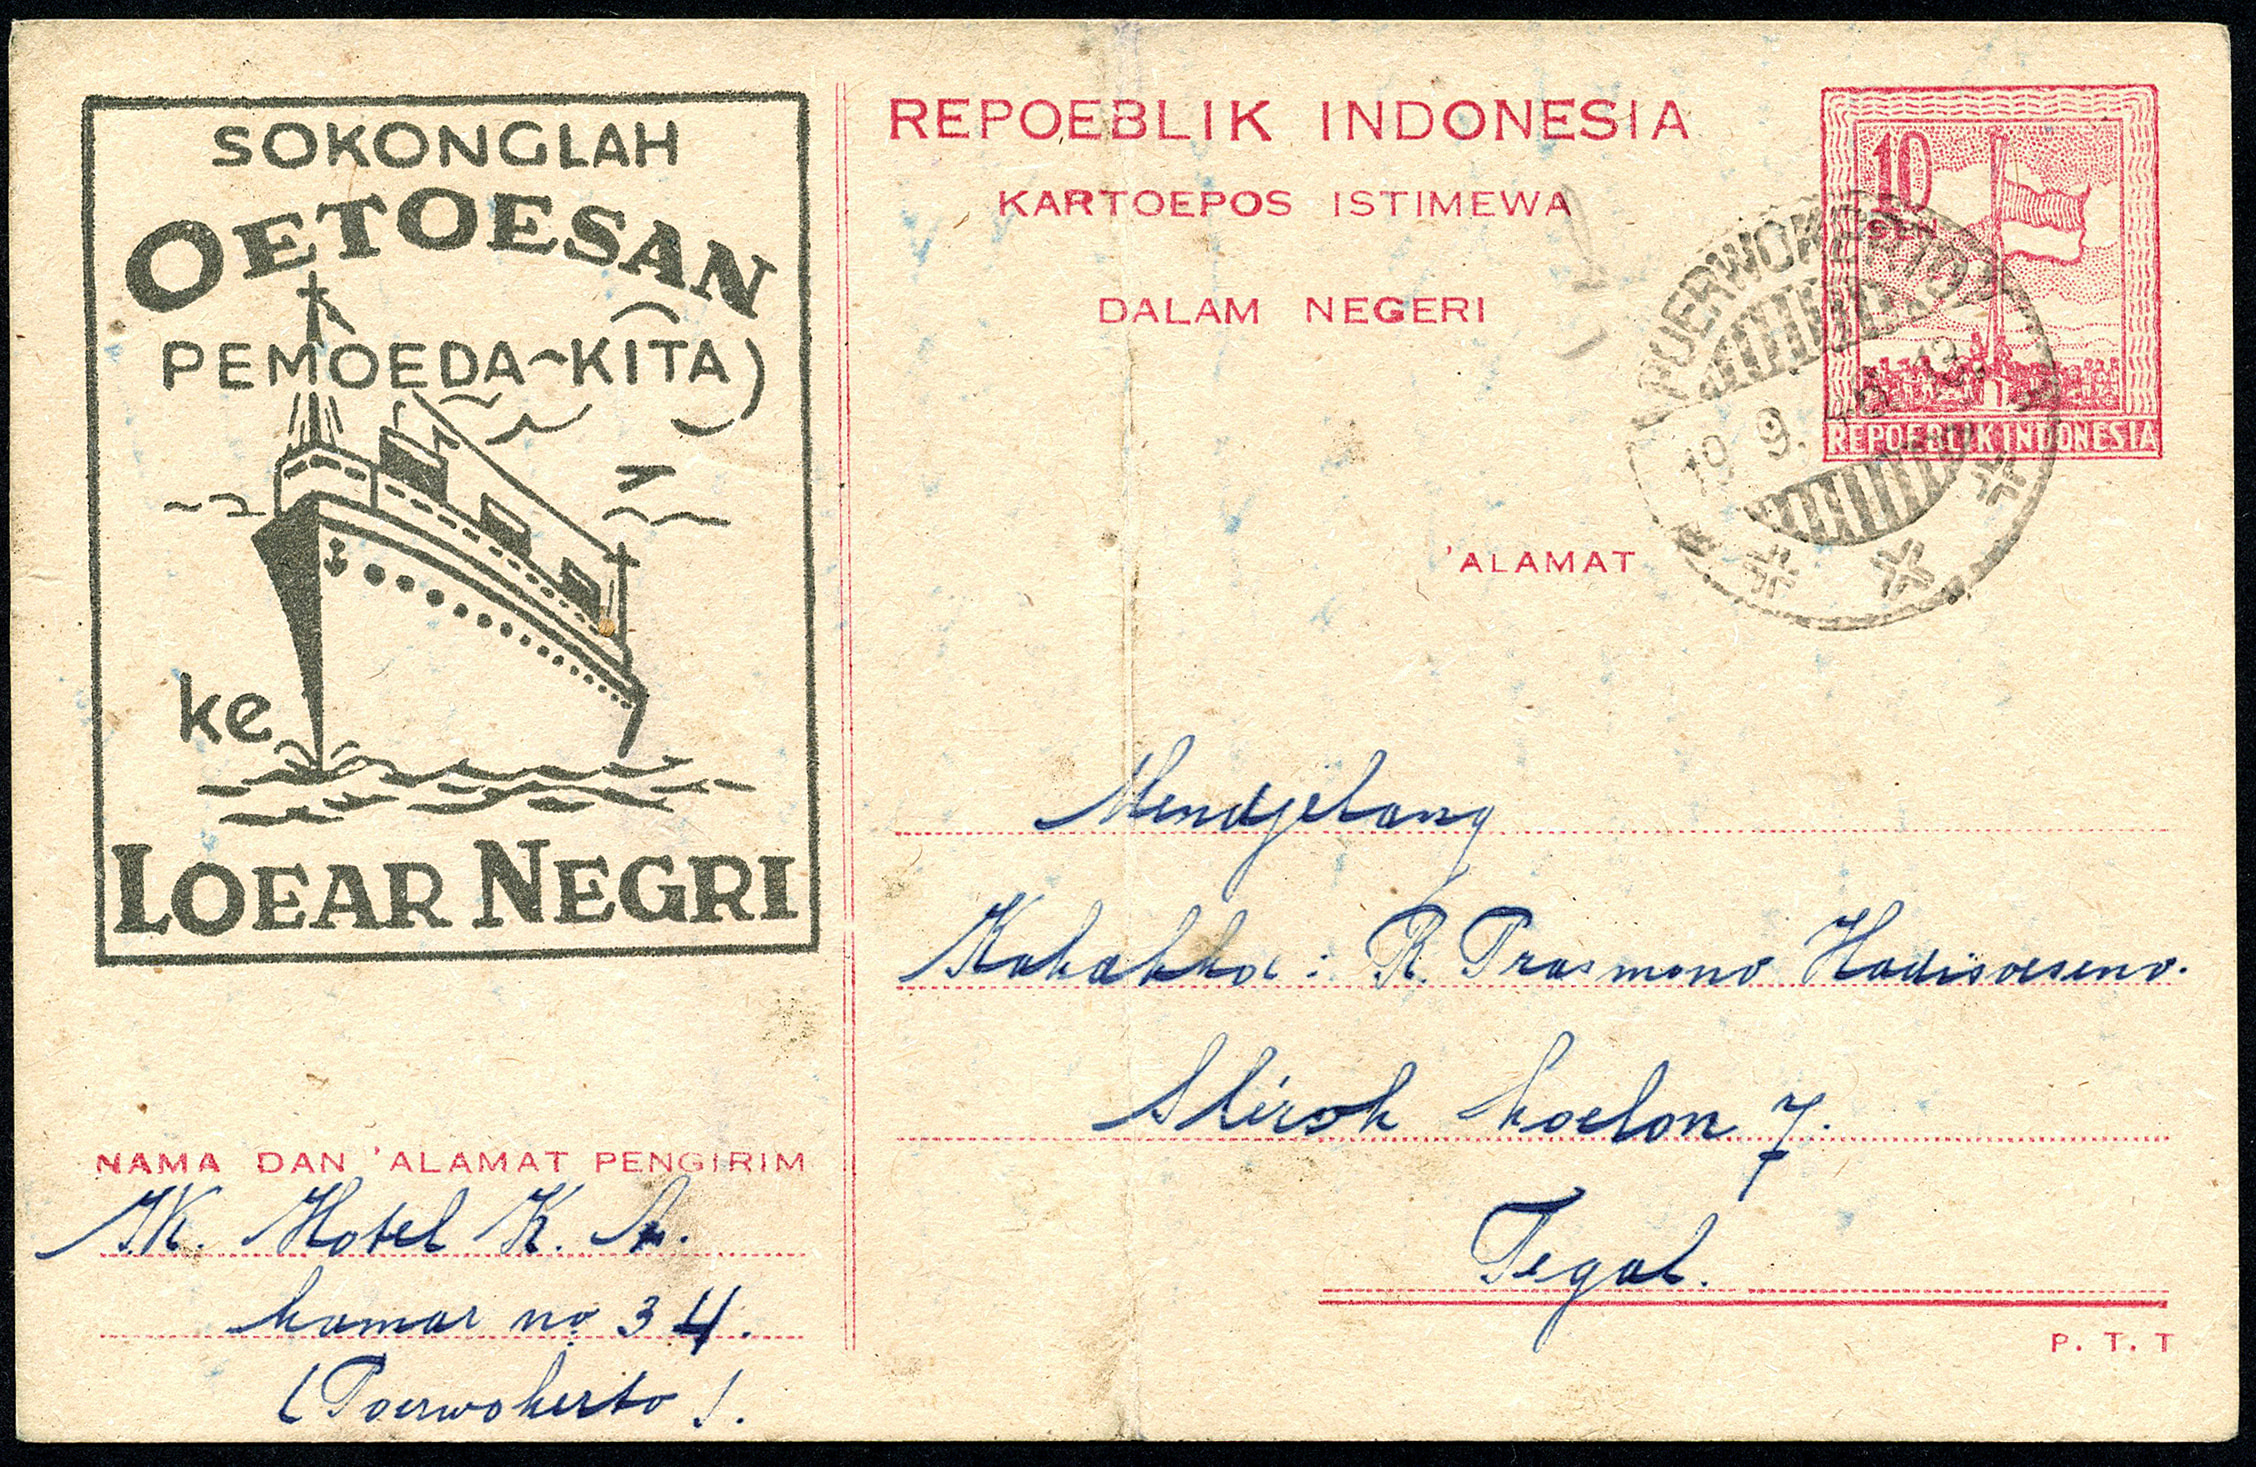 SOKONGLAH
OETOESAN
PEMOEDA~KITA
ke
LOEAR NEGRI
REPOEBLIK INDONESIA
KARTOEPOS ISTIMEWA
DALAM NEGERI
10
SEN
REPOEBLIK INDONESIA
POERWOKERTO
19 9. 13.
'ALAMAT
Mendjelang
Kakakkoe : R. Prasmono Hadisoeseno.
Slerok koelon 7.
Tegal.
P. T. T
NAMA DAN 'ALAMAT PENGIRIM
Hotel K. A.
kamar no 34.
(Poerwokerto).